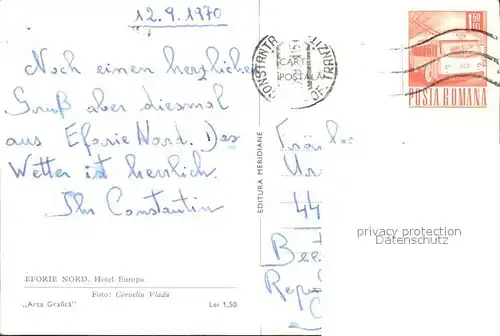 12.9.1970
Noch einen herzlichen
Gruß aber diesmal
aus Eforie Nord. Das
Wetter ist herrlich.
Ihr Constantin
EFORIE NORD. Hotel Europa
Foto: Corneliu Vladu
„Arta Grafică" Lei 1,50
EDITURA MERIDIANE
CARTE
POSTALĂ
CONSTANTA
1,50
LEI
POSTA ROMANA
44
privacy protection
Datenschutz